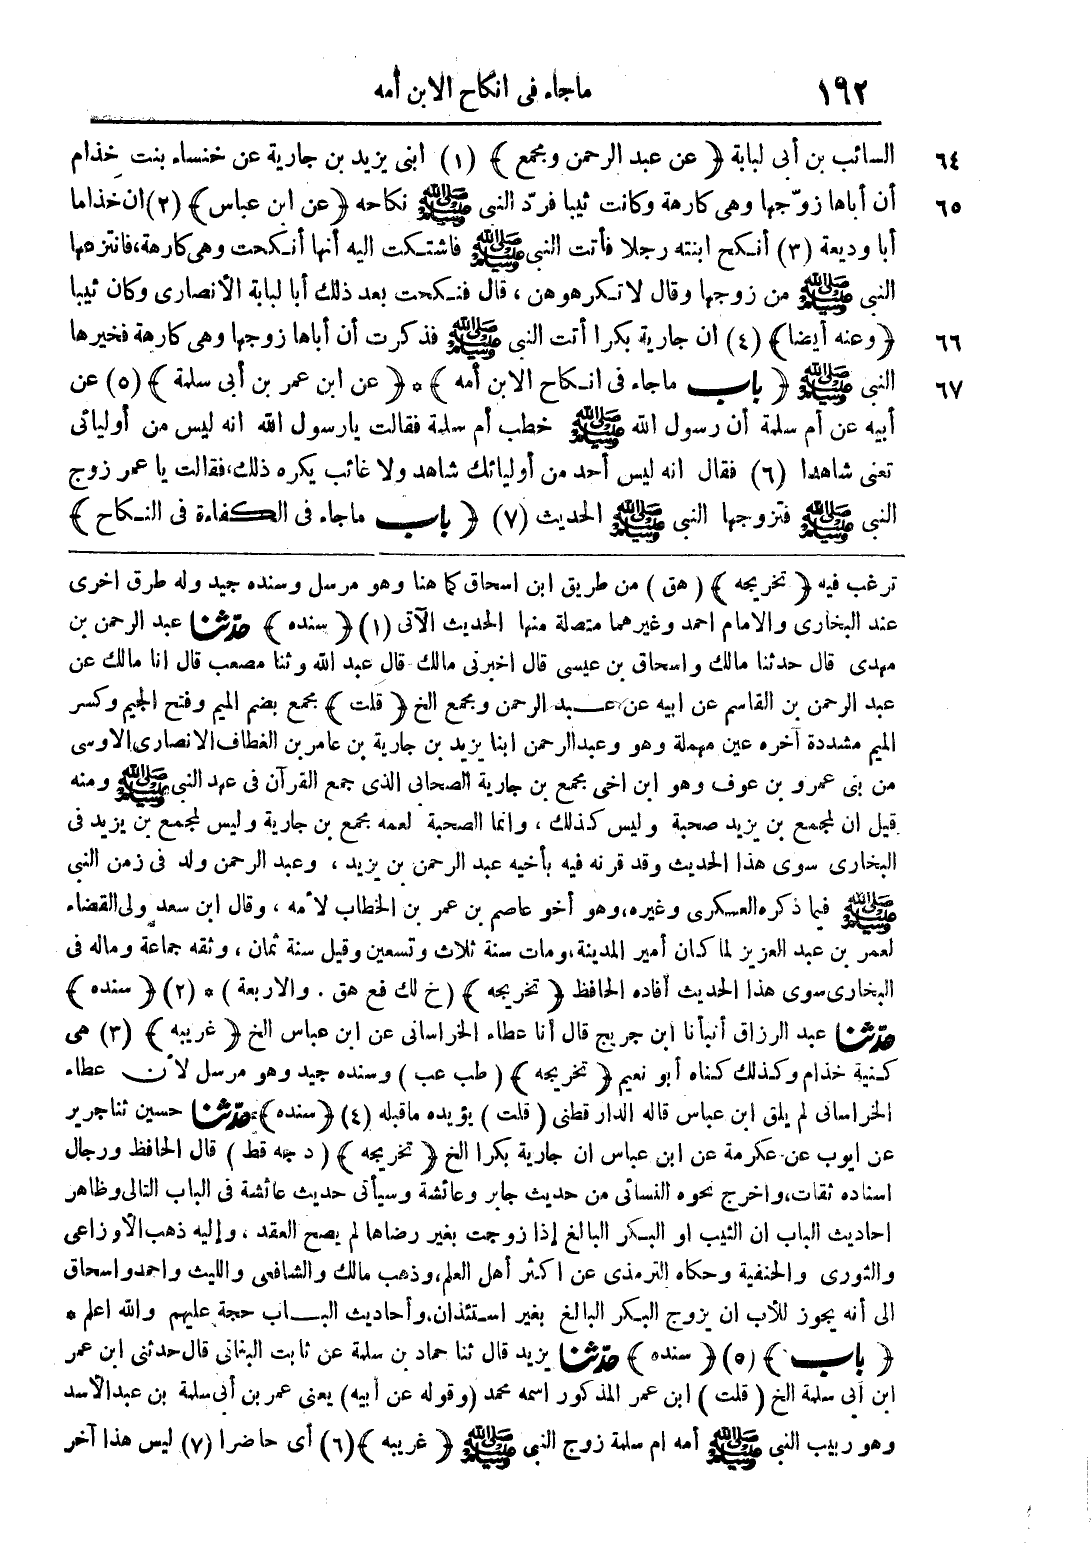 ١٩٢ ماجاء فى انكاح الابن أمه
٦٤ السائب بن أبى لبابة ﴿ عن عبد الرحمن ومجمع ﴾ (١) ابنى يزيد بن جارية عن خنساء بنت خذام
٦٥ أن أباها زوّجها وهى كارهة وكانت ثيبا فردّ النبى ﷺ نكاحه ﴿عن ابن عباس﴾ (٢) ان خذاما
أبا وديعة (٣) أنكح ابنته رجلا فأتت النبى ﷺ فاشتكت اليه أنها أنكحت وهى كارهة، فانتزعها
النبى ﷺ من زوجها وقال لاتكرهوهن ، قال فنكحت بعد ذلك أبا لبابة الأنصارى وكان ثيبا
٦٦ ﴿وعنه أيضا﴾ (٤) ان جارية بكرا أتت النبى ﷺ فذكرت أن أباها زوجها وهى كارهة فخيرها
٦٧ النبى ﷺ ﴿ باب ماجاء فى انكاح الابن أمه ﴾ * ﴿ عن ابن عمر بن أبى سلمة ﴾ (٥) عن
أبيه عن أم سلمة أن رسول الله ﷺ خطب أم سلمة فقالت يارسول الله انه ليس من أوليائى
تعنى شاهدا (٦) فقال انه ليس أحد من أوليائك شاهد ولا غائب يكره ذلك، فقالت يا عمر زوج
النبى ﷺ فتزوجها النبى ﷺ الحديث (٧) ﴿ باب ماجاء فى الكفاءة فى النكاح ﴾
ترغب فيه ﴿ تخريجه ﴾ ( هق ) من طريق ابن اسحاق كما هنا وهو مرسل وسنده جيد وله طرق اخرى
عند البخارى والامام احمد وغيرهما متصلة منها الحديث الآتى (١) ﴿ سنده ﴾ حدّثنا عبد الرحمن بن
مهدى قال حدثنا مالك واسحاق بن عيسى قال اخبرنى مالك قال عبد الله وثنا مصعب قال انا مالك عن
عبد الرحمن بن القاسم عن ابيه عن عبد الرحمن ومجمع الخ ﴿ قلت ﴾ مجمع بضم الميم وفتح الجيم وكسر
الميم مشددة آخره عين مهملة وهو وعبدالرحمن ابنا يزيد بن جارية بن عامر بن الغطاف الانصارى الاوسى
من بنى عمرو بن عوف وهو ابن اخى مجمع بن جارية الصحابى الذى جمع القرآن فى عهد النبى ﷺ ومنه
قيل ان لمجمع بن يزيد صحبة وليس كذلك ، وانما الصحبة لعمه مجمع بن جارية وليس لمجمع بن يزيد فى
البخارى سوى هذا الحديث وقد قرنه فيه بأخيه عبد الرحمن بن يزيد ، وعبد الرحمن ولد فى زمن النبى
ﷺ فيما ذكره العسكرى وغيره، وهو أخو عاصم بن عمر بن الخطاب لأمه ، وقال ابن سعد ولى القضاء
لعمر بن عبد العزيز لما كان أمير المدينة، ومات سنة ثلاث وتسعين وقيل سنة ثمان ، وثقه جماعة وماله فى
البخارى سوى هذا الحديث أفاده الحافظ ﴿ تخريجه ﴾ (خ لك فع هق . والاربعة ) * (٢) ﴿ سنده ﴾
حدّثنا عبد الرزاق أنبأنا ابن جريج قال أنا عطاء الخراسانى عن ابن عباس الخ ﴿ غريبه ﴾ (٣) هى
كنية خذام وكذلك كناه أبو نعيم ﴿ تخريجه ﴾ ( طب عب ) وسنده جيد وهو مرسل لأن عطاء
الخراسانى لم يلق ابن عباس قاله الدار قطنى ( قلت ) يؤيده ماقبله (٤) ﴿سنده﴾ حدّثنا حسين ثنا جرير
عن ايوب عن عكرمة عن ابن عباس ان جارية بكرا الخ ﴿ تخريجه ﴾ ( د جه قط ) قال الحافظ ورجال
اسناده ثقات، واخرج نحوه النسائى من حديث جابر وعائشة وسيأتى حديث عائشة فى الباب التالى وظاهر
احاديث الباب ان الثيب او البكر البالغ إذا زوجت بغير رضاها لم يصح العقد ، وإليه ذهب الأوزاعى
والثورى والحنفية وحكاه الترمذى عن اكثر أهل العلم، وذهب مالك والشافعى والليث واحمد واسحاق
الى أنه يجوز للأب ان يزوج البكر البالغ بغير استئذان، وأحاديث الباب حجة عليهم والله اعلم *
﴿ باب ﴾ (٥) ﴿ سنده ﴾ حدّثنا يزيد قال ثنا حماد بن سلمة عن ثابت البنانى قال حدثنى ابن عمر
ابن أبى سلمة الخ ( قلت ) ابن عمر المذكور اسمه محمد (وقوله عن أبيه) يعنى عمر بن أبى سلمة بن عبد الأسد
وهو ربيب النبى ﷺ أمه ام سلمة زوج النبى ﷺ ﴿ غريبه ﴾ (٦) أى حاضرا (٧) ليس هذا آخر